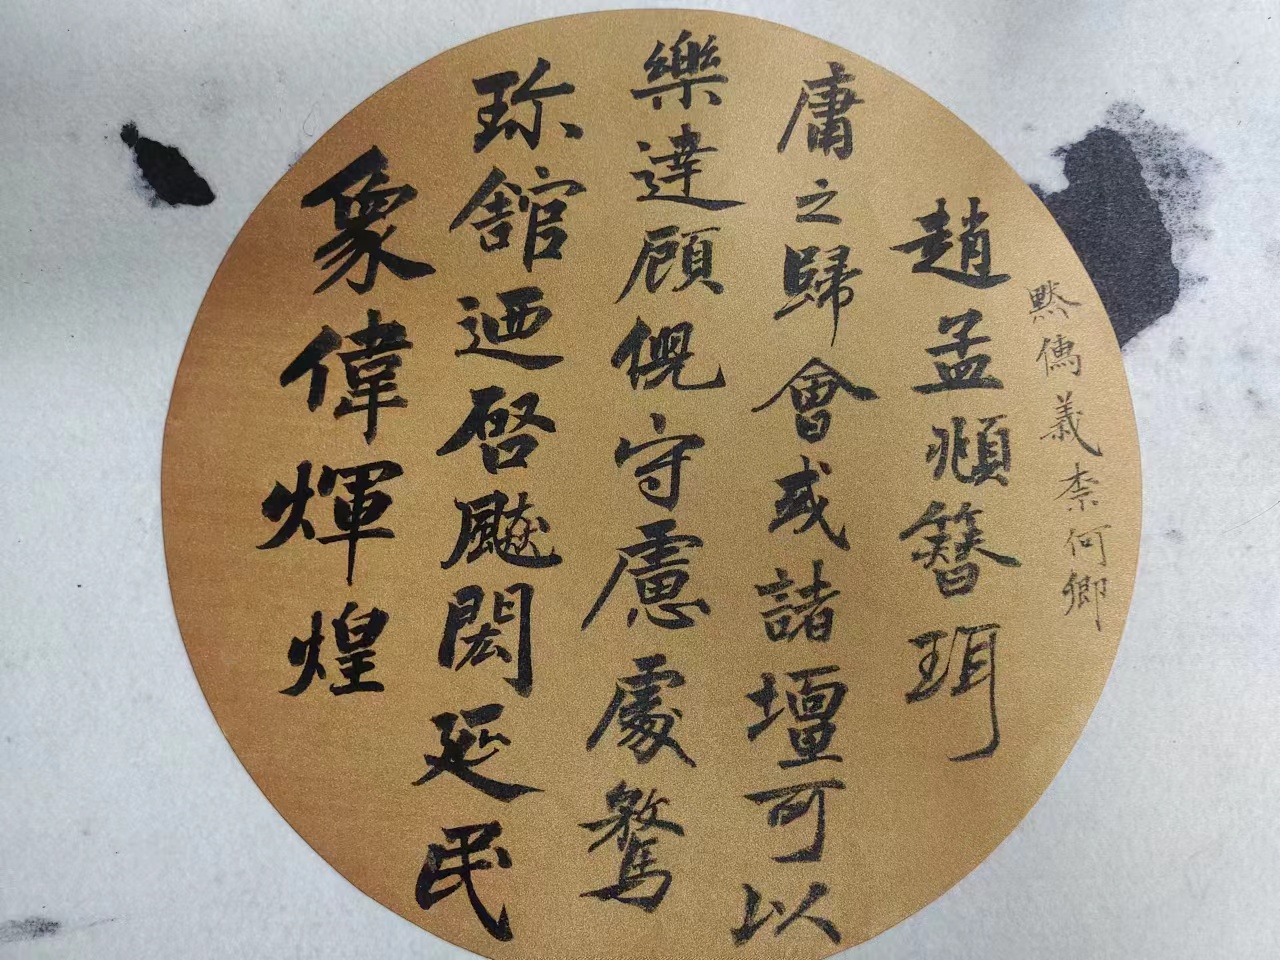 黙儁義柰何卿
趙孟頫簪珥
庸之歸會或諸壇可以
樂達顧俔守慮處騖
珎舘迺啓飈閎延民
象偉煇煌